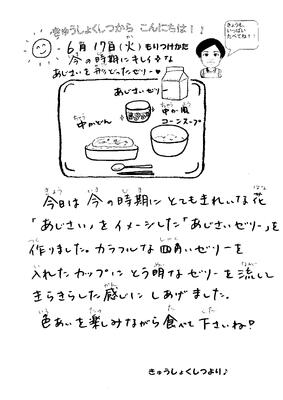 きゅうしょくしつから こんにちは!♪
きょうも、
いっぱい
たべてね!!
6月17日(火)もりつけかた
今の時期にキレイな
あじさいを形どったゼリー♥
あじさいゼリー
中かどん
中か風
コーンスープ
今日は今の時期にとてもきれいな花
「あじさい」をイメージした「あじさいゼリー」を
作りました。カラフルな四角いゼリーを
入れたカップにとう明なゼリーを流して
きらきらした感じにしあげました。
色あいを楽しみながら食べて下さいね♡
きゅうしょくしつより♪